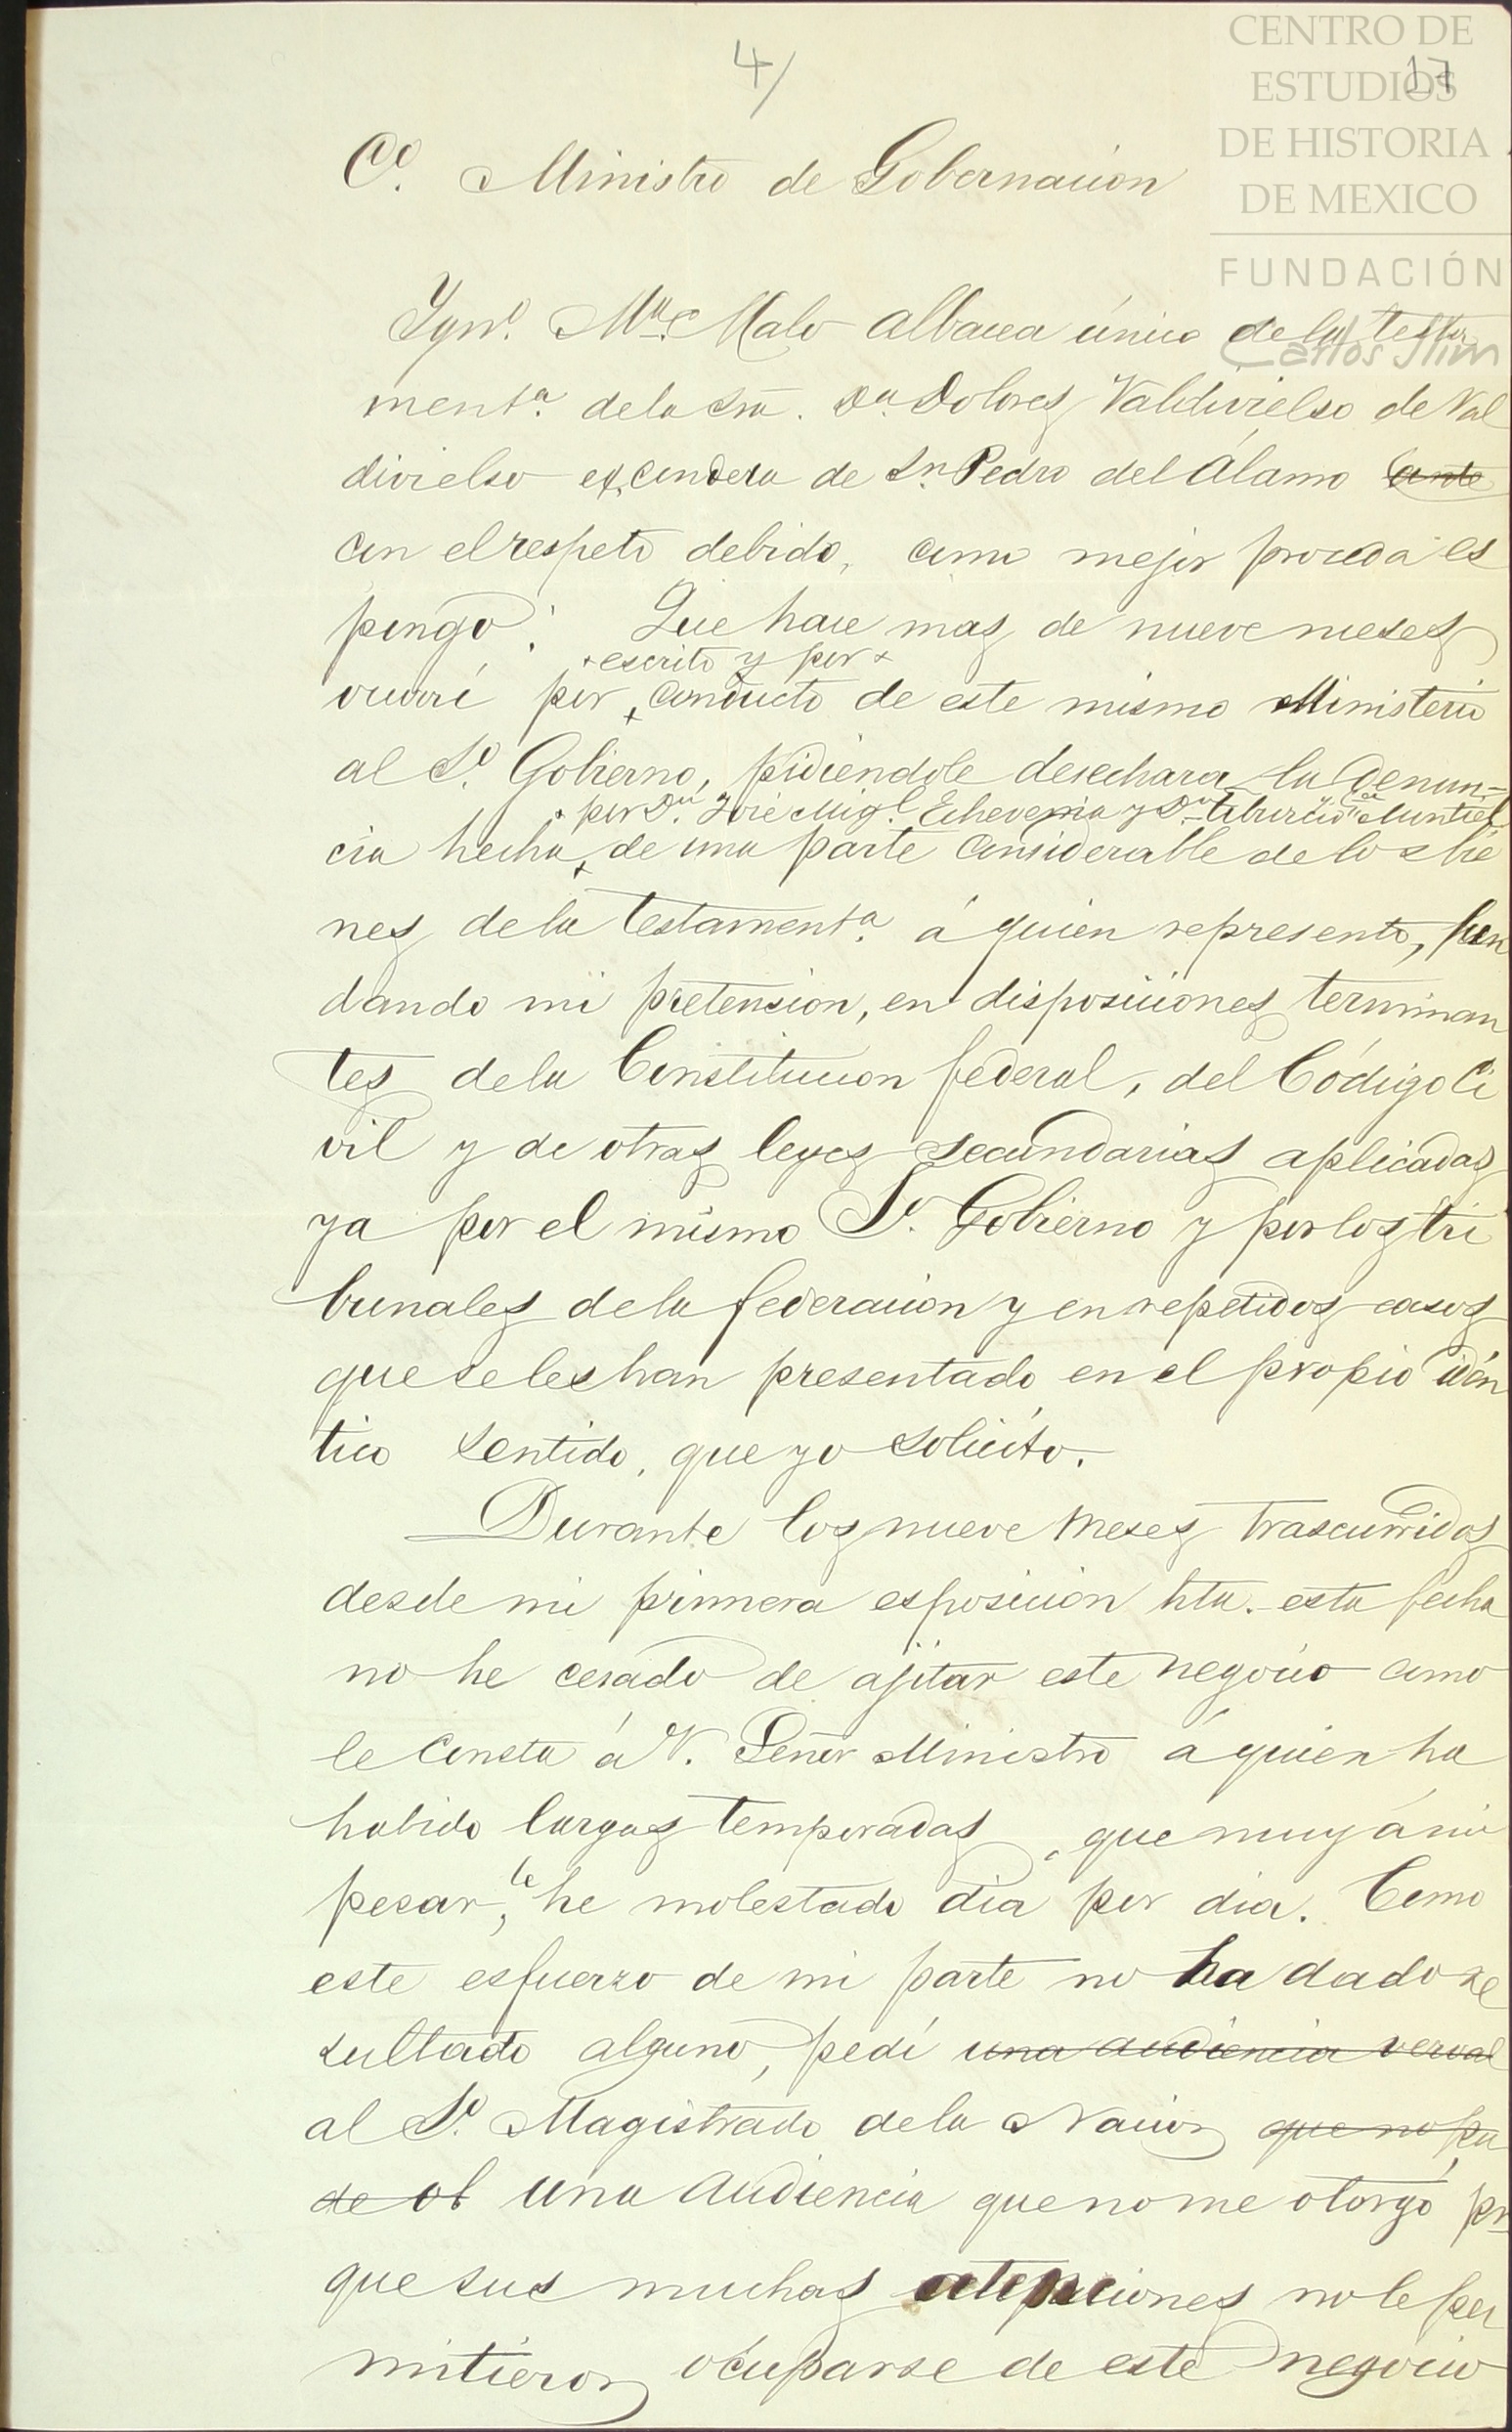 4/
17
CENTRO DE
ESTUDIOS
DE HISTORIA
DE MEXICO
FUNDACIÓN
Carlos Slim
Cº. Ministro de Gobernacion
Ygnº. Mª. Malo albacea único de la testa
mentª. de la Sra. Dª. Dolores Valdivielso de Val
divielso de Sn. Pedro del Álamo ante
con el respeto debido, como mejor proceda es
pongo: Que hace mas de nueve meses
+ escrito y por +
ocurrí por + conducto de este mismo Ministerio
al Sº. Gobierno, pidiéndole desechara la denun-
+ por Dn. José Migl. Echeverria y Dn. Tiburcio Montiel
cia hecha + de una parte considerable de los bie
nes de la testamentª. á quien represento, fun
dando mi pretension, en disposiciones terminan
tes de la Constitucion federal, del Código Ci
vil y de otras leyes secundarias aplicadas
ya por el mismo Sº. Gobierno y por los tri
bunales de la federacion y en repetidos casos
que se les han presentado en el propio idén
tico sentido, que yo solicito.
Durante los nueve meses trascurridos
desde mi primera esposicion hta. esta fecha
no he cesado de ajitar este negocio como
le consta á V. Señor Ministro á quien ha
habido largas temporadas, que muy á mi
pesar, le he molestado dia por dia. Como
este esfuerzo de mi parte no ha dado re
sultado alguno, pedí una audiencia verval
al Sº. Magistrado de la Nacion que no pu
de ob una audiencia que no me otorgó por
que sus muchas atenciones no le per
mitieron ocuparse de este negocio